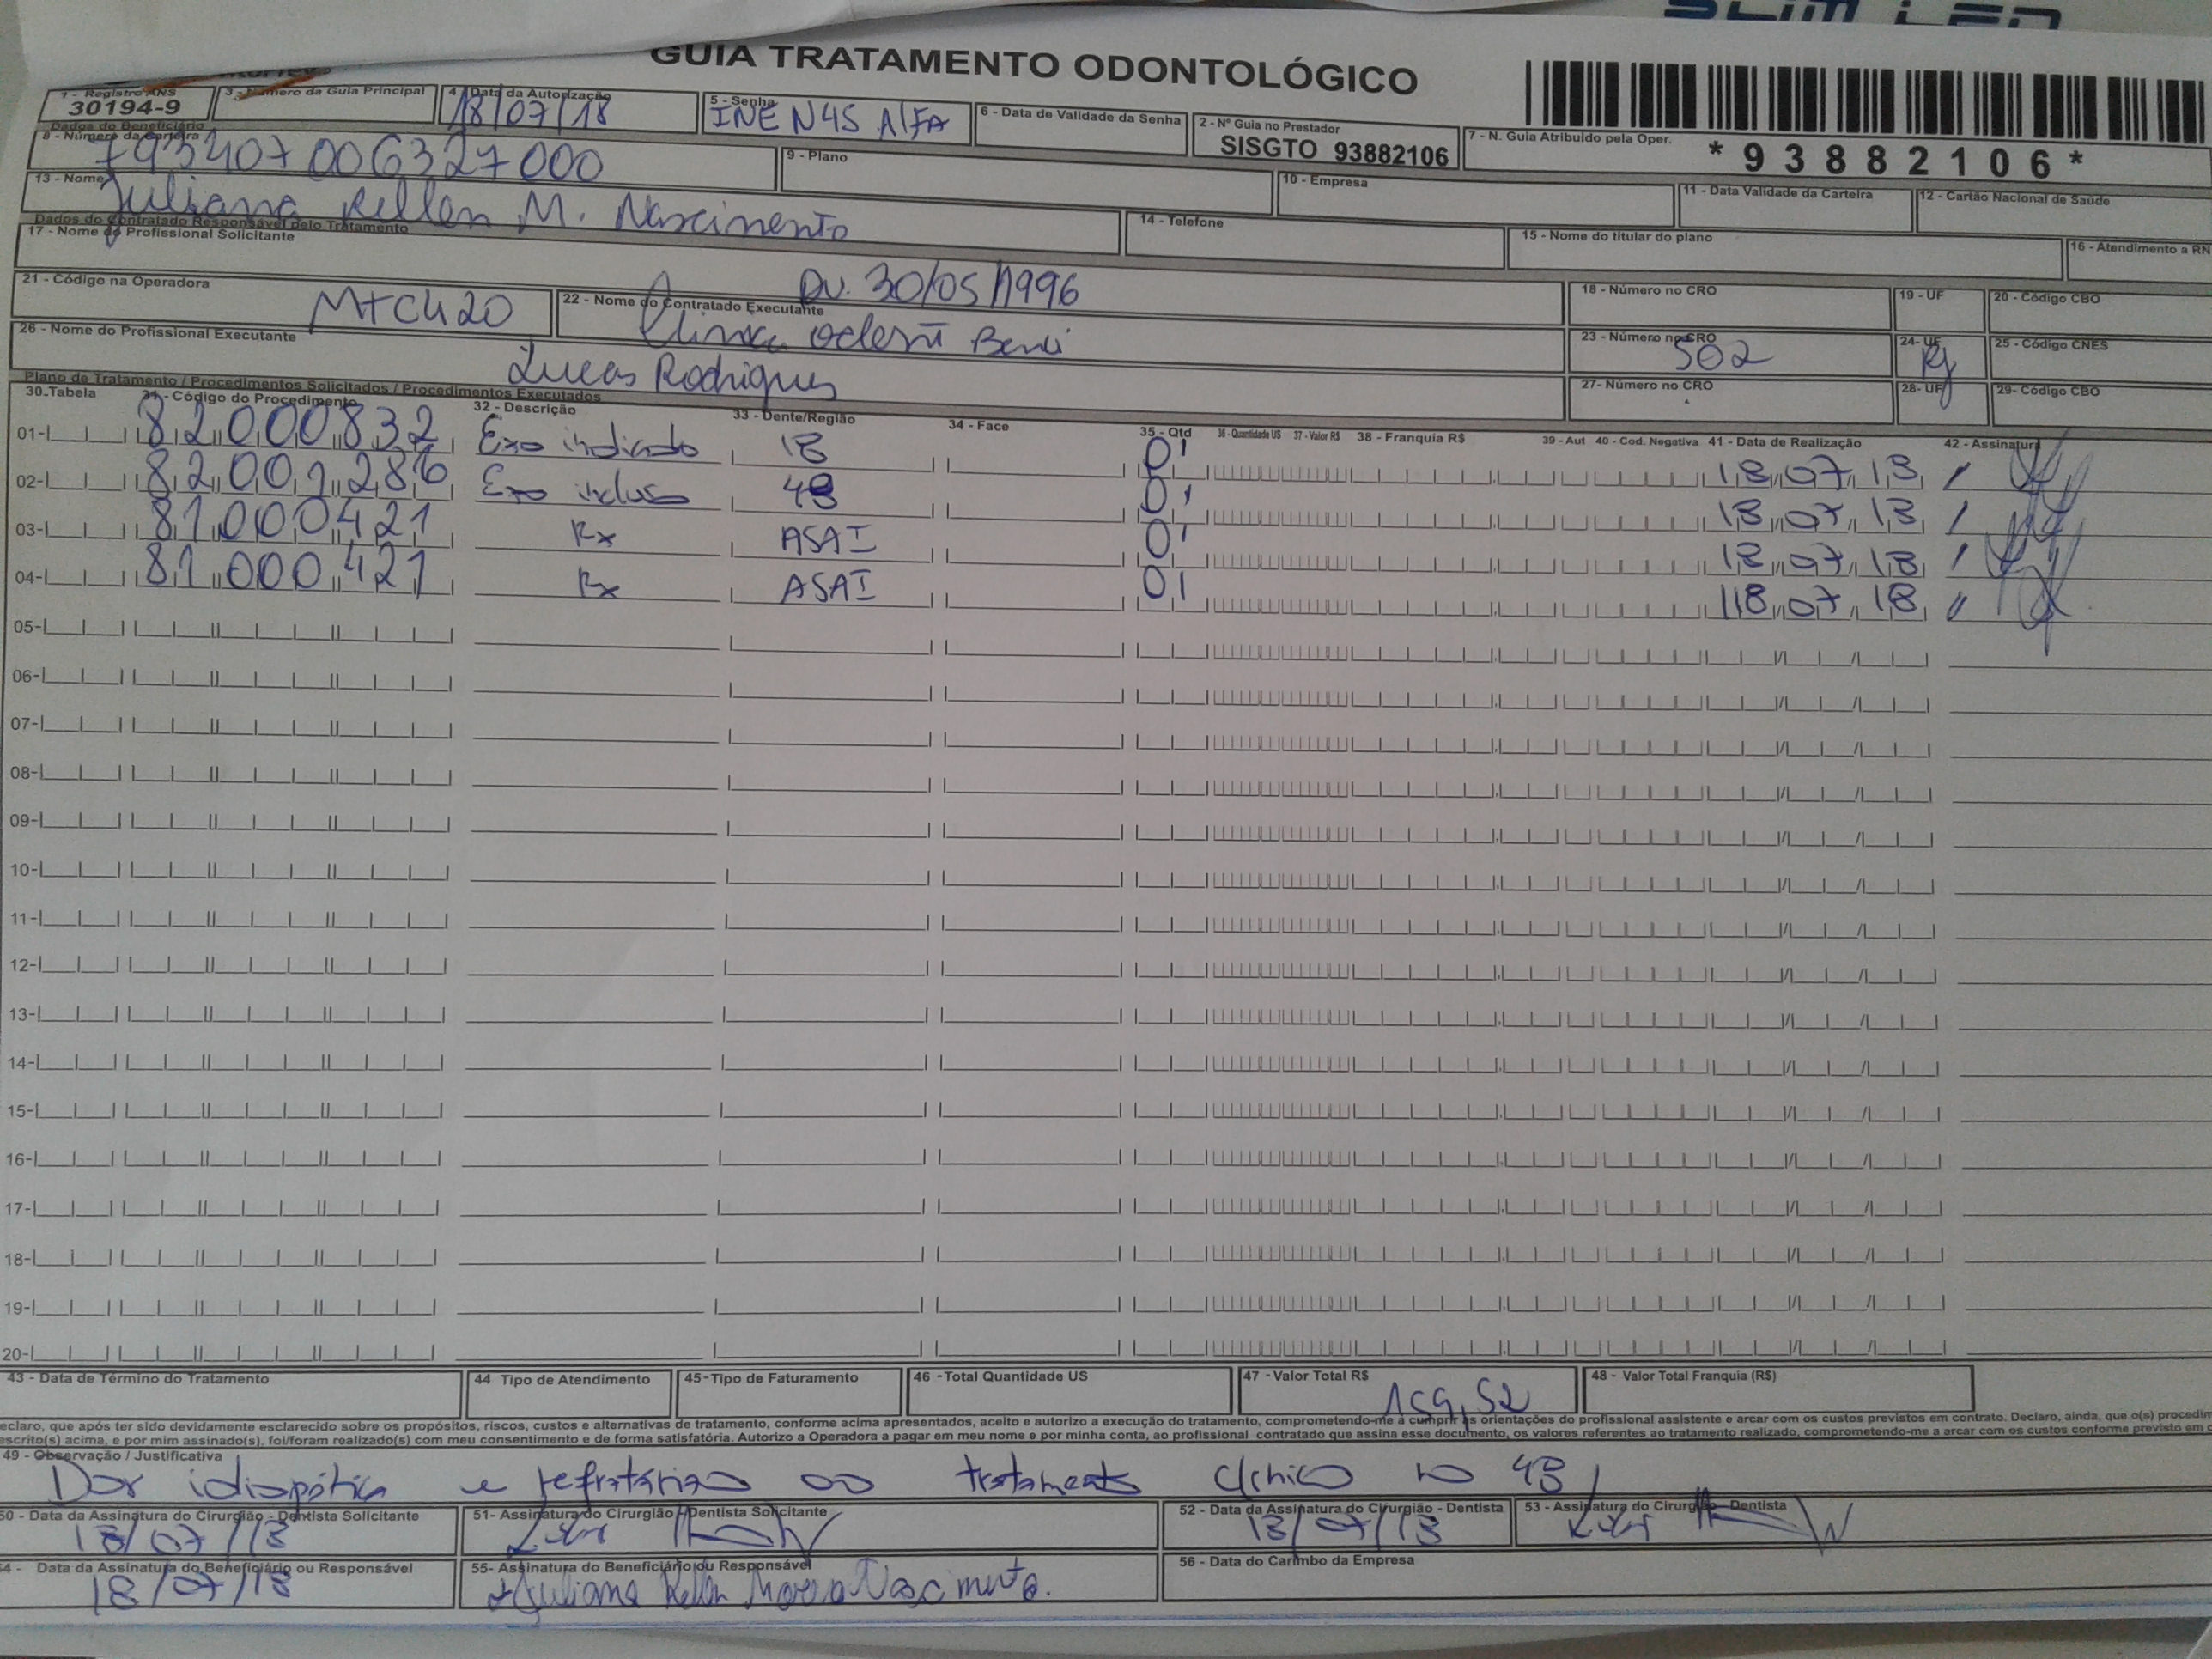 SLIM LED
GUIA TRATAMENTO ODONTOLÓGICO
1 - Registro ANS 30194-9
3 - Número da Guia Principal
4 - Data da Autorização 18/07/18
5 - Senha
6 - Data de Validade da Senha
2 - Nº Guia no Prestador SISGTO 93882106
7 - N. Guia Atribuído pela Oper. *93882106*
Dados do Beneficiário
8 - Número da Carteira
9 - Plano
10 - Empresa
11 - Data Validade da Carteira
12 - Cartão Nacional de Saúde
13 - Nome Juliana Kellen M. Nascimento
14 - Telefone
15 - Nome do titular do plano
16 - Atendimento a RN
Dados do Contratado Responsável pelo Tratamento
17 - Nome do Profissional Solicitante DN. 30/05/1996
18 - Número no CRO
19 - UF
20 - Código CBO
21 - Código na Operadora
22 - Nome do Contratado Executante
23 - Número no CRO 502
24 - UF RJ
25 - Código CNES
26 - Nome do Profissional Executante Lucas Rodrigues
27 - Número no CRO
28 - UF
29 - Código CBO
Plano de Tratamento / Procedimentos Solicitados / Procedimentos Executados
30.Tabela 31 - Código do Procedimento 32 - Descrição 33 - Dente/Região 34 - Face 35 - Qtd 36 - Quantidade US 37 - Valor R$ 38 - Franquia R$ 39 - Aut 40 - Cod. Negativa 41 - Data de Realização 42 - Assinatura
01- 82000832 Exo indicado 18 01 18 07 18
02- 82001286 Exo incluso 48 01 18 07 18
03- 81000421 Rx ASAI 01 18 07 18
04- 81000421 Rx ASAI 01 18 07 18
05-
06-
07-
08-
09-
10-
11-
12-
13-
14-
15-
16-
17-
18-
19-
20-
43 - Data de Término do Tratamento
44 Tipo de Atendimento
45-Tipo de Faturamento
46 - Total Quantidade US
47 - Valor Total R$
48 - Valor Total Franquia (R$)
eclaro, que após ter sido devidamente esclarecido sobre os propósitos, riscos, custos e alternativas de tratamento, conforme acima apresentados, aceito e autorizo a execução do tratamento, comprometendo-me a cumprir as orientações do profissional assistente e arcar com os custos previstos em contrato. Declaro, ainda, que o(s) procedim
escrito(s) acima, e por mim assinado(s), foi/foram realizado(s) com meu consentimento e de forma satisfatória. Autorizo a Operadora a pagar em meu nome e por minha conta, ao profissional contratado que assina esse documento, os valores referentes ao tratamento realizado, comprometendo-me a arcar com os custos conforme previsto em c
49 - Observação / Justificativa
Dor idiopática e refratária ao tratamento clínico no 48
50 - Data da Assinatura do Cirurgião - Dentista Solicitante 18/07/18
51- Assinatura do Cirurgião - Dentista Solicitante
52 - Data da Assinatura do Cirurgião - Dentista 18/07/18
53 - Assinatura do Cirurgião - Dentista
54 - Data da Assinatura do Beneficiário ou Responsável 18/07/18
55- Assinatura do Beneficiário ou Responsável Juliana Kellen Nascimento.
56 - Data do Carimbo da Empresa